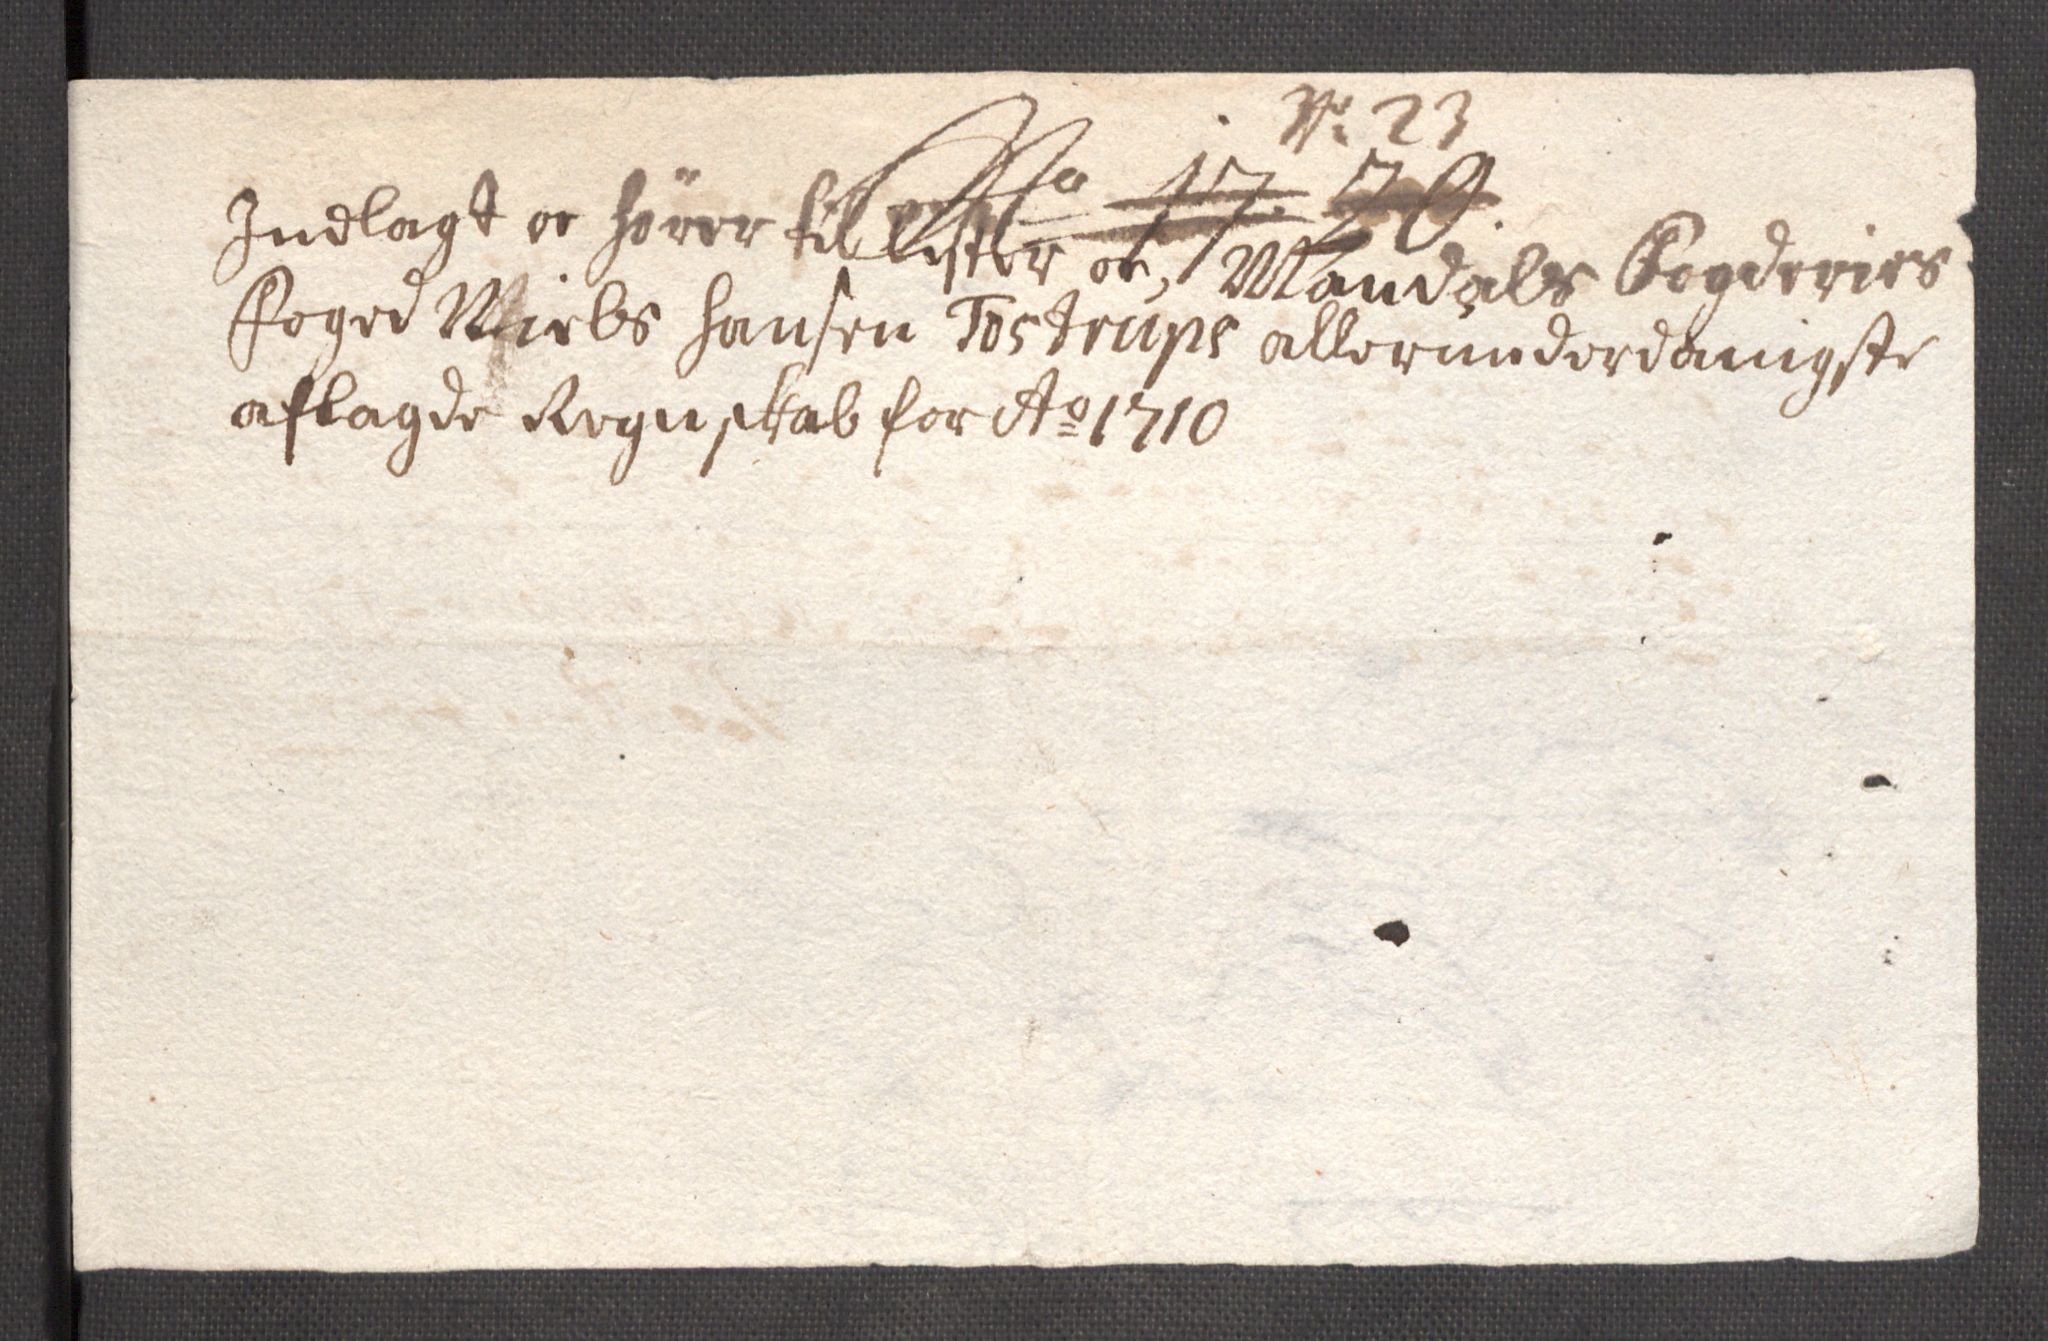 No 23
Indlagt oc hörer til Lister oc Mandals Fogderies
Foged Niels Hansen Tostrups allerunderdanigste
aflagde Regnskab for Ao 1710